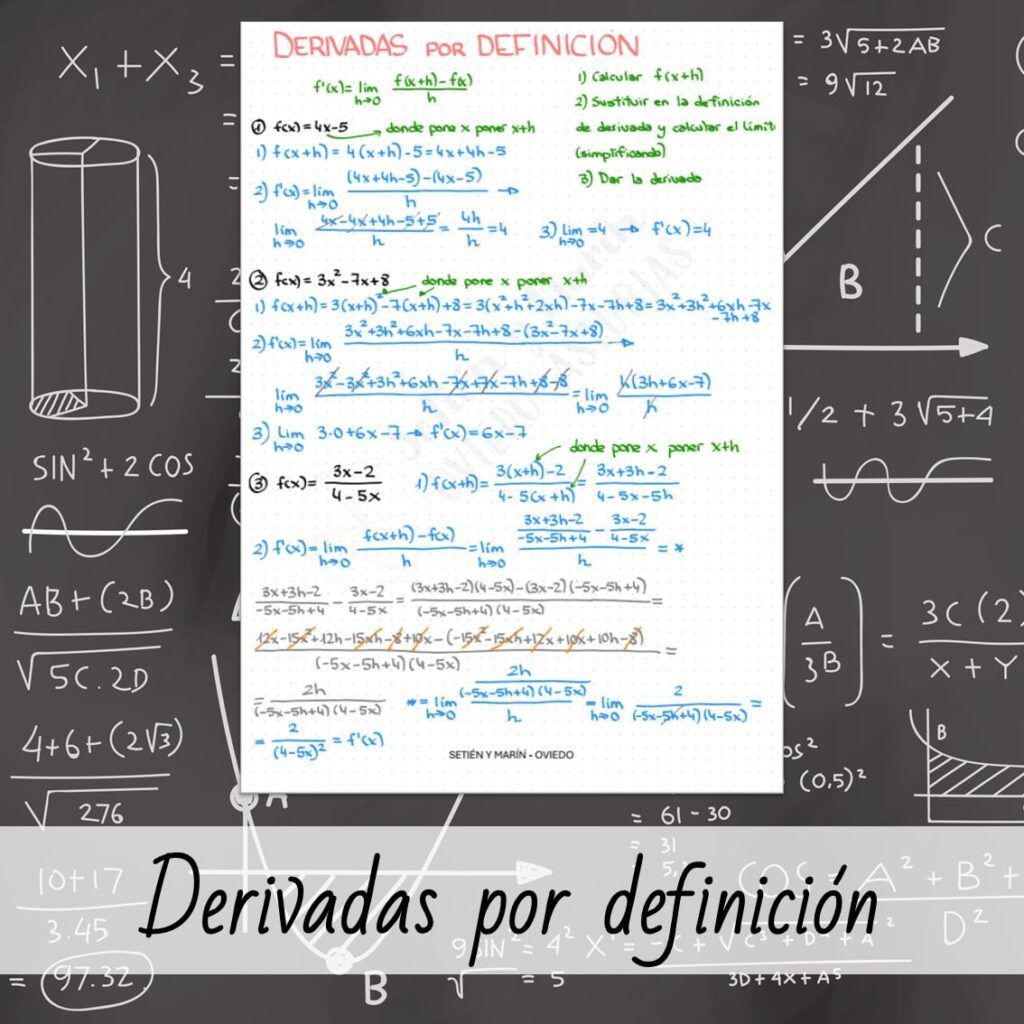 DERIVADAS POR DEFINICIÓN
f'(x)= lím h→0 f(x+h)-f(x) / h
1) Calcular f(x+h)
2) Sustituir en la definición
de derivada y calcular el límite
(simplificando)
3) Dar la derivada
① f(x)=4x-5 → donde pone x poner x+h
1) f(x+h)= 4(x+h)-5=4x+4h-5
2) f'(x)= lím h→0 (4x+4h-5)-(4x-5) / h →
lím h→0 4x-4x+4h-5+5 / h = 4h / h =4
3) lím h→0 =4 → f'(x)=4
② f(x)= 3x²-7x+8 donde pone x poner x+h
1) f(x+h)=3(x+h)²-7(x+h)+8=3(x²+h²+2xh)-7x-7h+8=3x²+3h²+6xh-7x
-7h+8
2) f'(x)= lím h→0 3x²+3h²+6xh-7x-7h+8-(3x²-7x+8) / h →
lím h→0 3x²-3x²+3h²+6xh-7x+7x-7h+8-8 / h = lím h→0 h(3h+6x-7) / h
3) Lím h→0 3·0+6x-7 → f'(x)=6x-7
donde pone x poner x+h
③ f(x)= 3x-2 / 4-5x 1) f(x+h)= 3(x+h)-2 / 4-5(x+h) = 3x+3h-2 / 4-5x-5h
2) f'(x)= lím h→0 f(x+h)-f(x) / h = lím h→0 3x+3h-2 / -5x-5h+4 - 3x-2 / 4-5x / h = *
3x+3h-2 / -5x-5h+4 - 3x-2 / 4-5x = (3x+3h-2)(4-5x)-(3x-2)(-5x-5h+4) / (-5x-5h+4)(4-5x) =
12x-15x²+12h-15xh-8+10x-(-15x²-15xh+12x+10x+10h-8) / (-5x-5h+4)(4-5x) =
= 2h / (-5x-5h+4)(4-5x) *= lím h→0 2h / (-5x-5h+4)(4-5x) / h = lím h→0 2 / (-5x-5h+4)(4-5x) =
= 2 / (4-5x)² = f'(x)
SETIÉN Y MARÍN - OVIEDO
X₁+X₃ =
4
SIN²+2 COS
AB+(2B)
√5C.2D
4+6+(2√3)
√276
10+17
3.45
= 97.32
= 3√5+2AB
= 9√12
B
C
1/2 + 3√5+4
A / 3B = 3C (2) / X + Y
B
(0,5)²
= 61-30
= 31
A
Derivadas por definición
COS = A² + B² +
D²
9 SIN² = 4²
√ = 5
3D+4X+A⁵
B